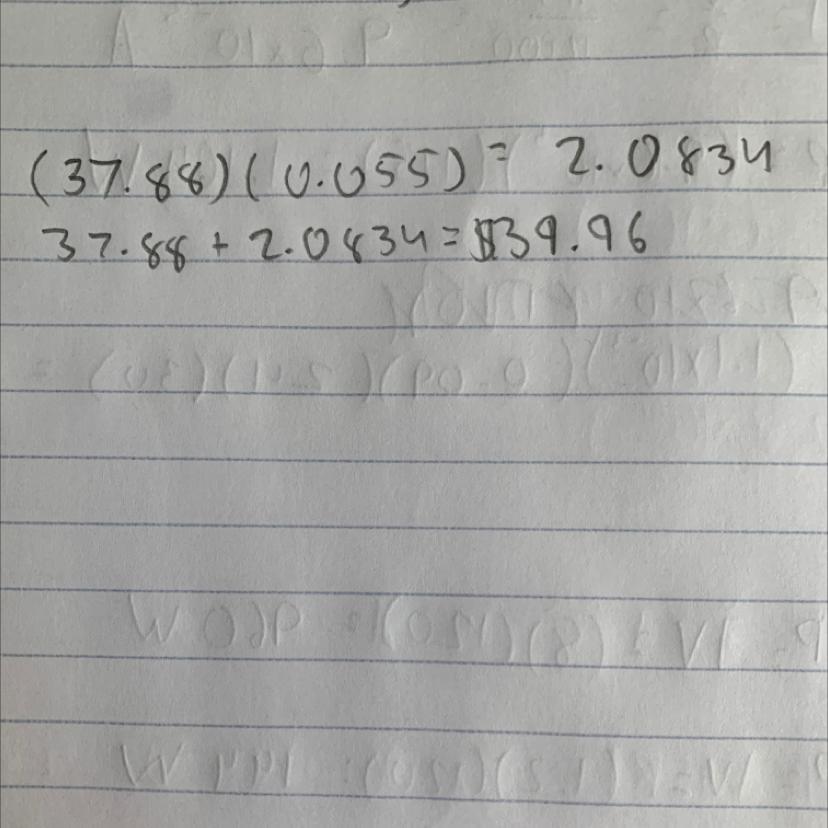 (37.88)(0.055) = 2.0834
37.88 + 2.0834 = $39.96